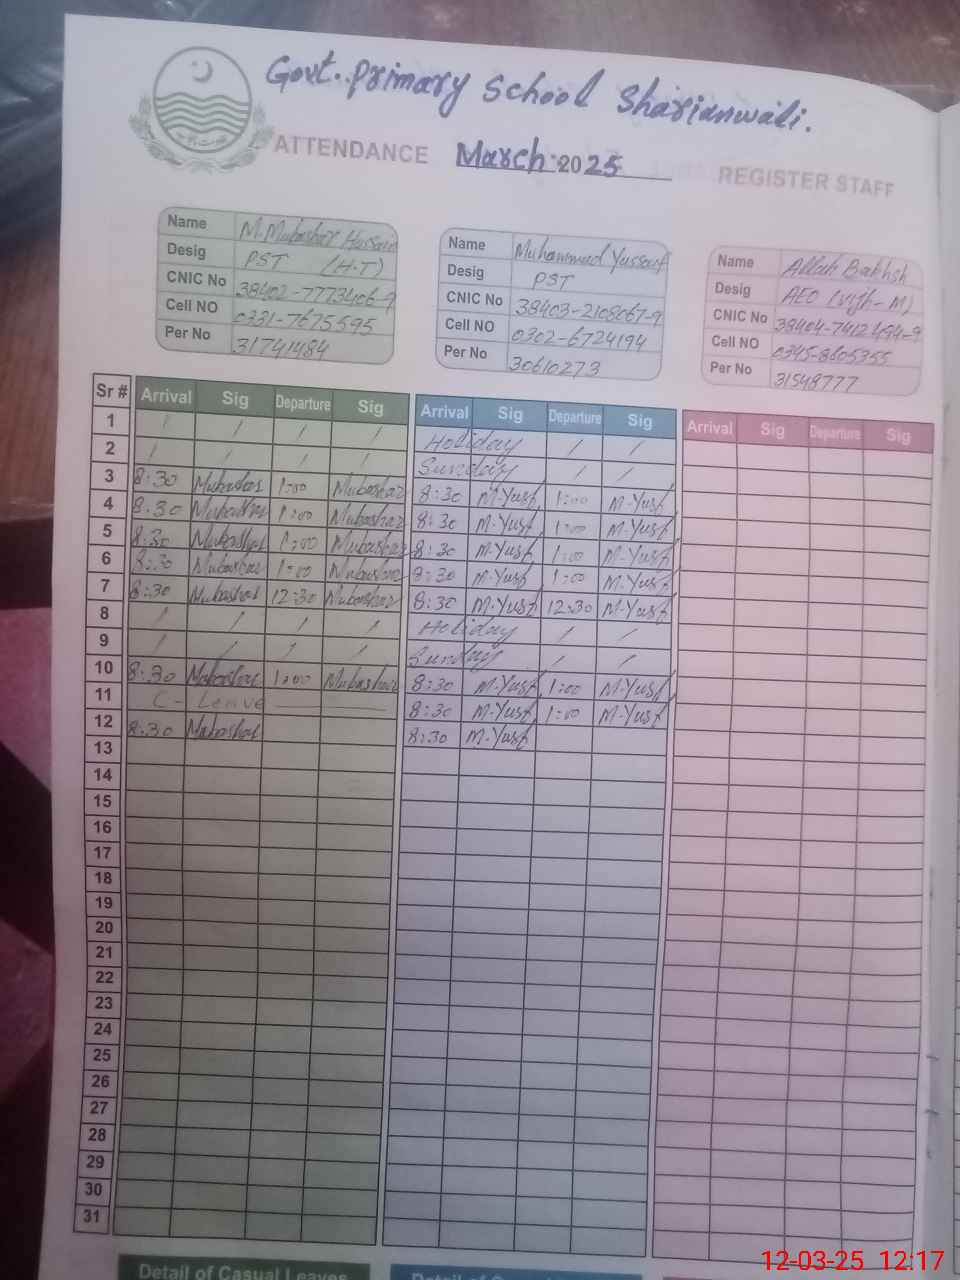 Govt. Primary School Sharianwali.
ATTENDANCE March 2025 REGISTER STAFF
Name M. Mubashar Hussain
Desig PST (H-T)
CNIC No 38402-7773406-9
Cell NO 0331-7675595
Per No 31741484
Name Muhammad Yussouf
Desig PST
CNIC No 38403-2108067-9
Cell NO 0302-6724194
Per No 30610273
Name Allah Bakhsh
Desig AEO (Vijh-M)
CNIC No 38404-7412494-9
Cell NO 0345-8605355
Per No 31548777
Sr # Arrival Sig Departure Sig Arrival Sig Departure Sig Arrival Sig Departure Sig
1 / / / / Holiday / /
2 / / / / Sunday / /
3 8:30 Mubashar 1:00 Mubashar 8:30 M-Yusf 1:00 M-Yusf
4 8:30 Mubashar 1:00 Mubashar 8:30 M-Yusf 1:00 M-Yusf
5 8:30 Mubashar 1:00 Mubashar 8:30 M-Yusf 1:00 M-Yusf
6 8:30 Mubashar 1:00 Mubashar 8:30 M-Yusf 1:00 M-Yusf
7 8:30 Mubashar 12:30 Mubashar 8:30 M-Yusf 12:30 M-Yusf
8 / / / / Holiday / /
9 / / / / Sunday / /
10 8:30 Mubashar 1:00 Mubashar 8:30 M-Yusf 1:00 M-Yusf
11 C-Leave 8:30 M-Yusf 1:00 M-Yusf
12 8:30 Mubashar 8:30 M-Yusf
13
14
15
16
17
18
19
20
21
22
23
24
25
26
27
28
29
30
31
Detail of Casual Leaves
12-03-25 12:17